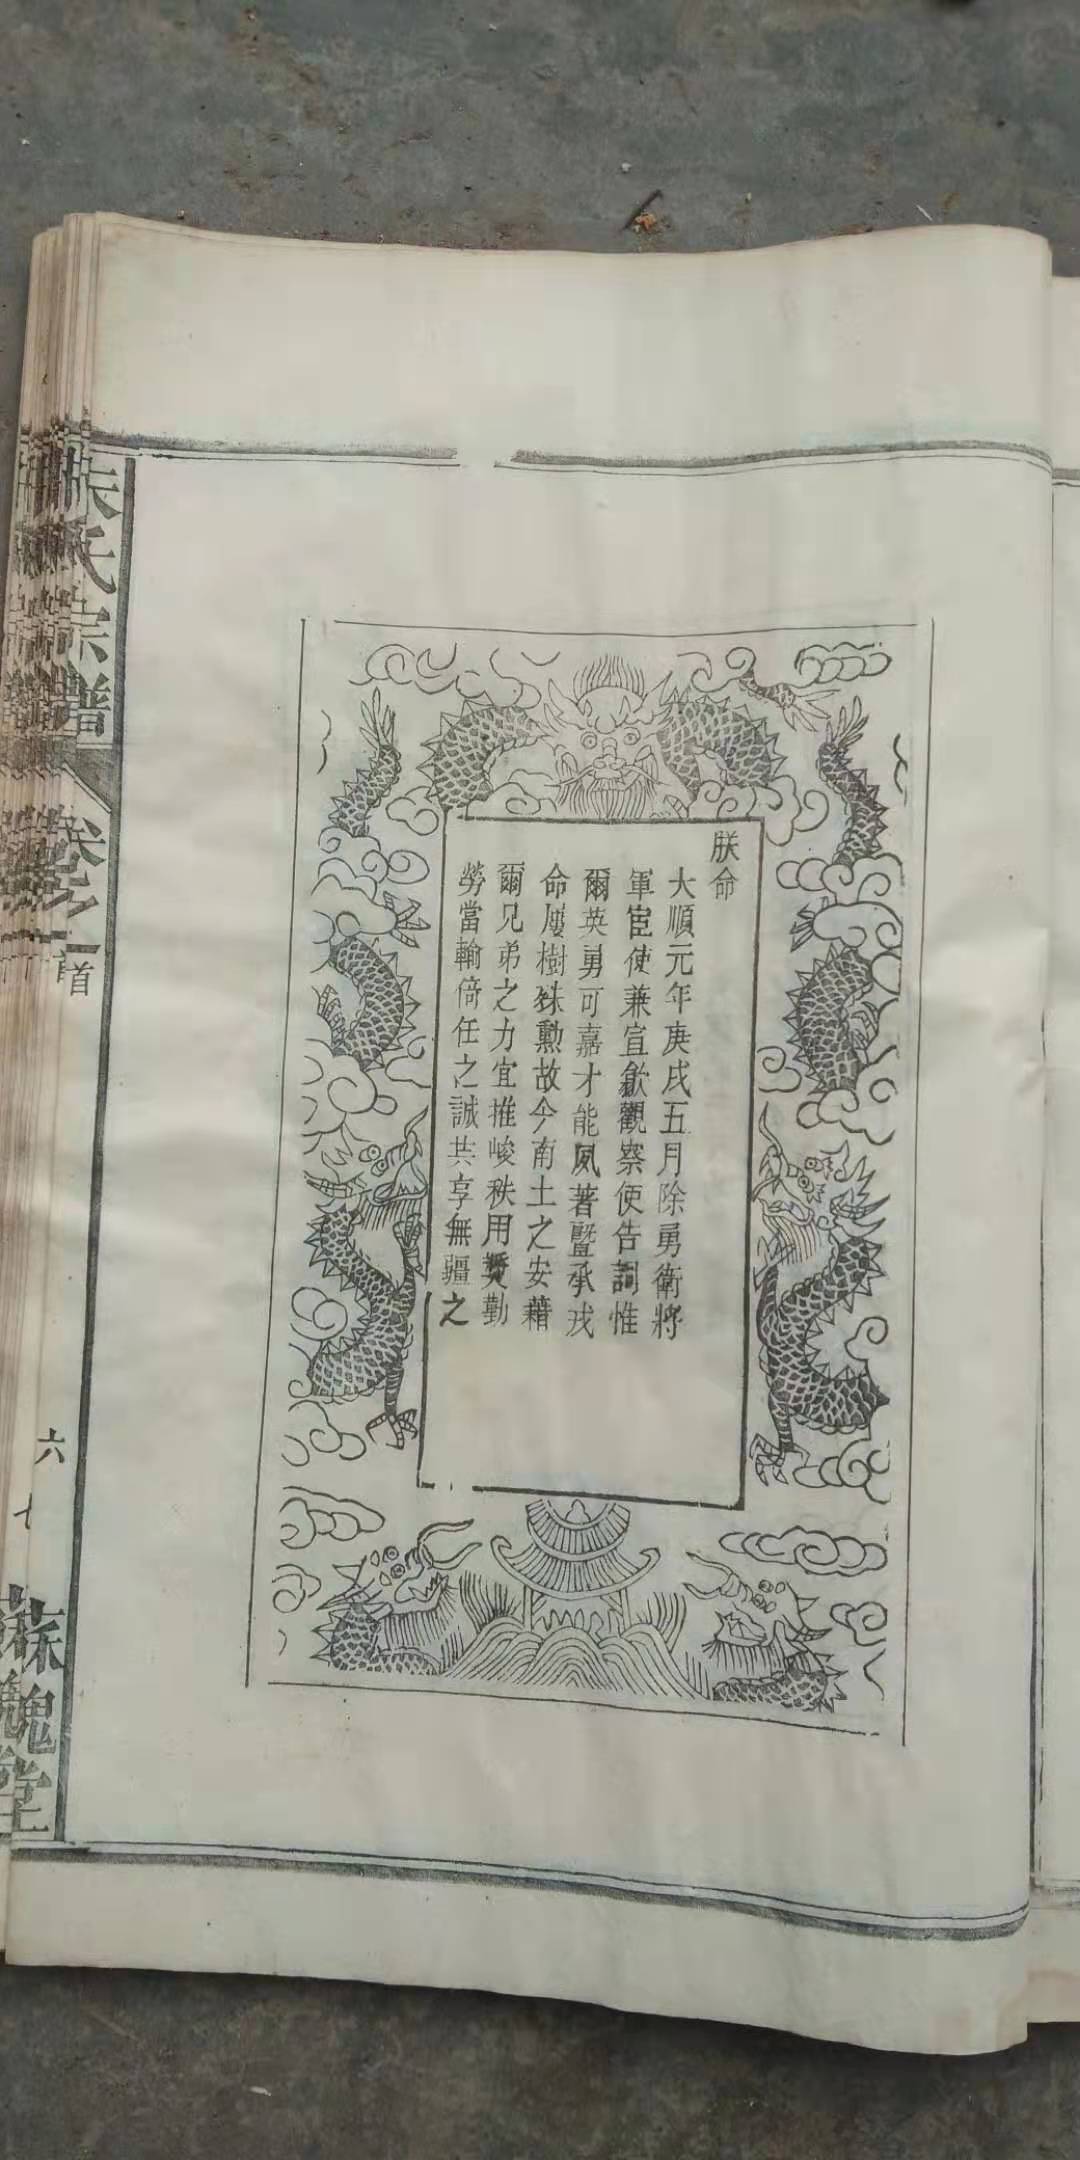 朕命
大順元年庚戌五月除勇衛將
軍宦使兼宣歙觀察使告詞惟
爾英勇可嘉才能夙著暨承戎
命屢樹殊勲故今南土之安藉
爾兄弟之力宜推峻秩用奬勤
勞當輸倚任之誠共享無疆之
氏宗譜
卷之一首
六
七